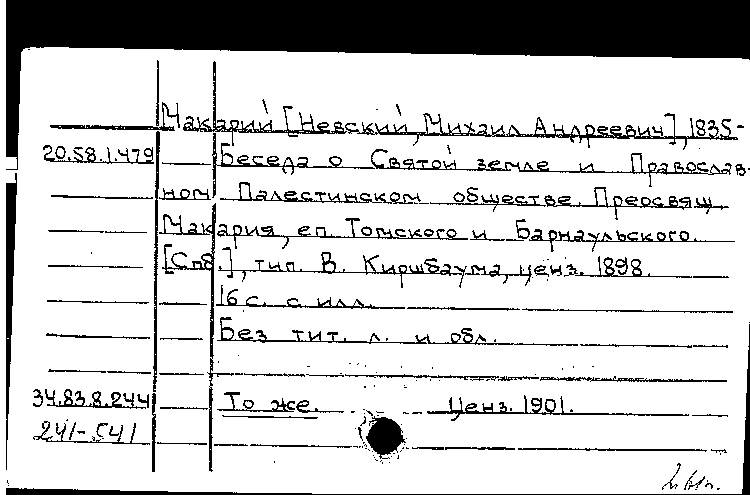 Макарий [Невский, Михаил Андреевич], 1835-
20.58.1.479 Беседа о Святой земле и Православ-
ном Палестинском обществе. Преосвящ.
Макария, еп. Томского и Барнаульского.
[Спб.], тип. В. Киршбаума, ценз. 1898.
16 с. с илл.
Без тит. л. и обл.
34.83.8.244 То же. Ценз. 1901.
241-541